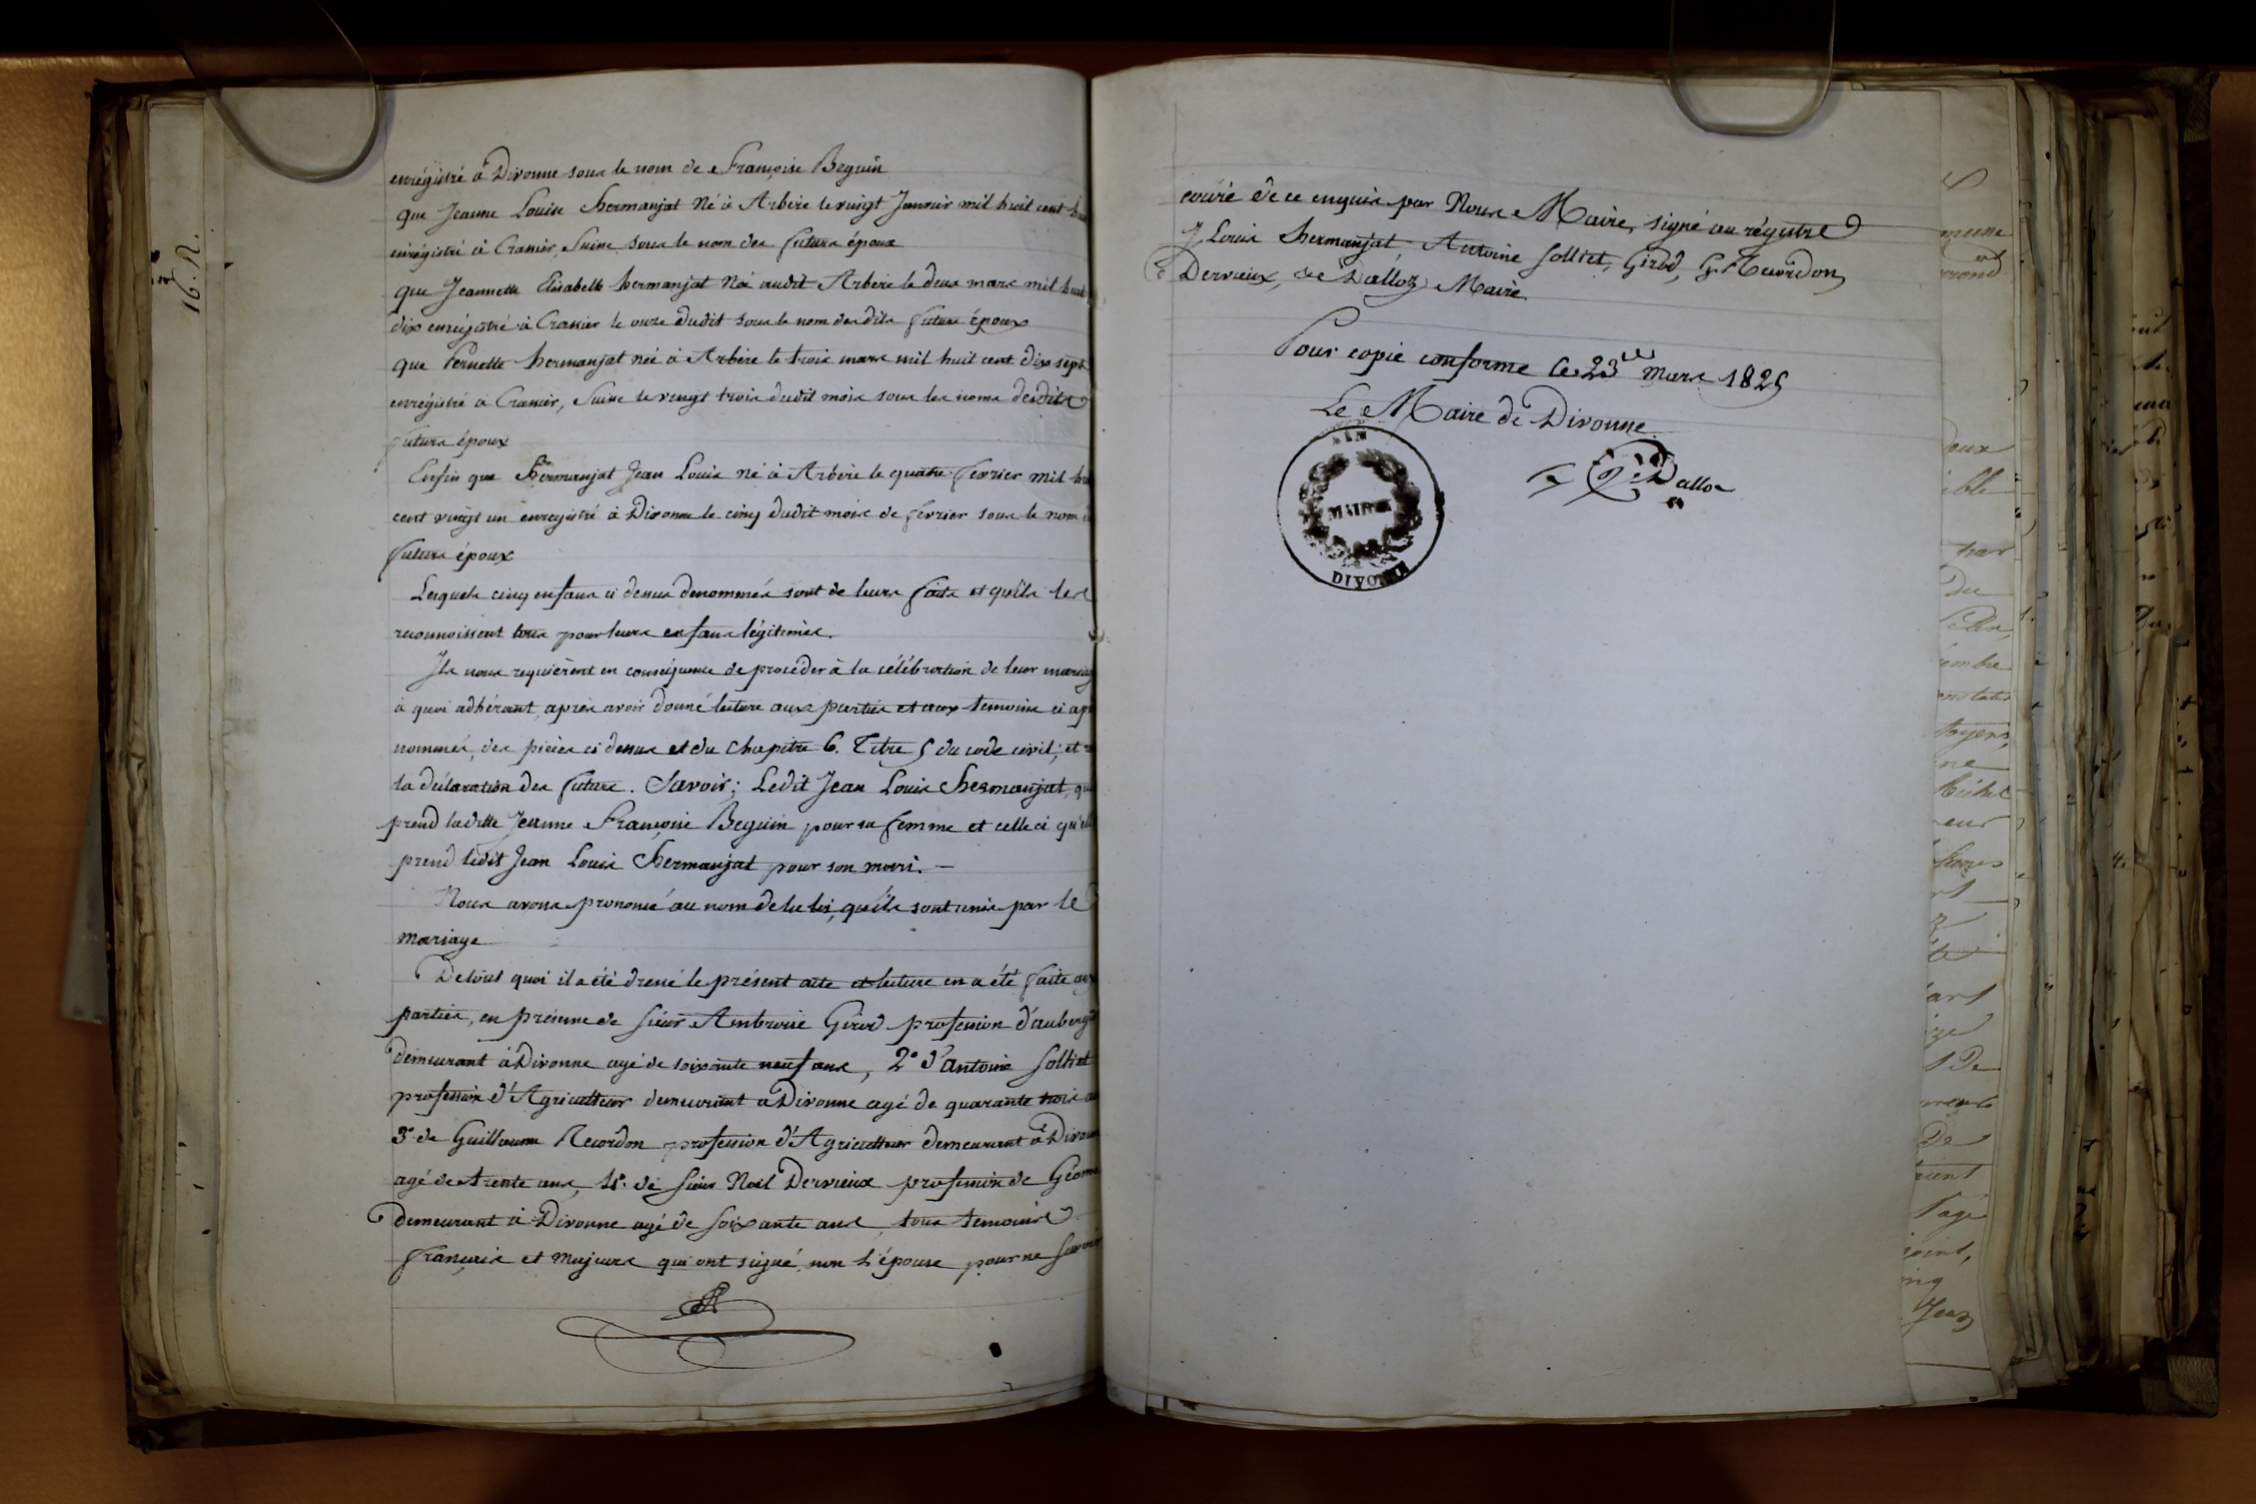 16. R.
enrégistré à Divonne sous le nom de Françoise Beguin
que Jeanne Louise Chermanjat Né à Arbère le vingt Janvier mil huit cent
enrégistré à Crassier, Suisse sous le nom des futurs époux
que Jeannette Elisabeth Chermanjat Née audit Arbère le deux mars mil huit
dix enrégistré à Crassier le onze dudit sous le nom desdits futurs époux
que Pernette Chermanjat née à Arbère le trois mars mil huit cent dix sept
enrégistré à Crassier, Suisse le vingt trois dudit mois sous les noms desdits
futurs époux
Enfin que Chermanjat Jean Louis né à Arbère le quatre fevrier mil
cent vingt un enregistré à Divonne le cinq dudit mois de février sous le nom
futurs époux
Lesquels cinq enfans ci dessus denommés sont de leurs faits et qu'ils les
reconnoissent tous pour leurs enfans légitimes.
Ils nous requièrent en conséquence de procéder à la célébration de leur
à quoi adhérant, après avoir donné lecture aux parties et aux temoins ci
nommés, des pièces ci dessus et du Chapitre 6. Titre 5 du code civil; et
la déclaration des futurs. Savoir; Ledit Jean Louis Chermanjat, qu
prend ladite Jeanne Françoise Beguin pour sa femme et celle ci
prend ledit Jean Louis Chermanjat pour son mari. —
Nous avons prononcé au nom de la loi, qu'ils sont unis par le
mariage
De tout quoi il a été dressé le présent acte et lecture en a été faite
parties, en présence de Sieur Ambroise Girod profession
demeurant à Divonne agé de soixante neuf ans, 2° Sr Antoine Solliet
profession d'Agriculteur demeurant à Divonne agé de quarante trois
3° de Guillaume Recordon profession d'Agriculteur demeurant à
agé de trente ans, 4° de Sieur Noël Dervieux profession de
demeurant à Divonne agé de soixante ans, tous temoins
français et majeurs qui ont signé non l'épouse pour ne
de ce enquis par Nous Maire, signé au régistre
J. Louis Chermanjat, Antoine Solliet, Girod, G. Recordon,
Dervieux, de Dalloz Maire.
Pour copie conforme le 23 mars 1825
Le Maire de Divonne.
Dalloz
AIN
MAIRIE
DIVONNE